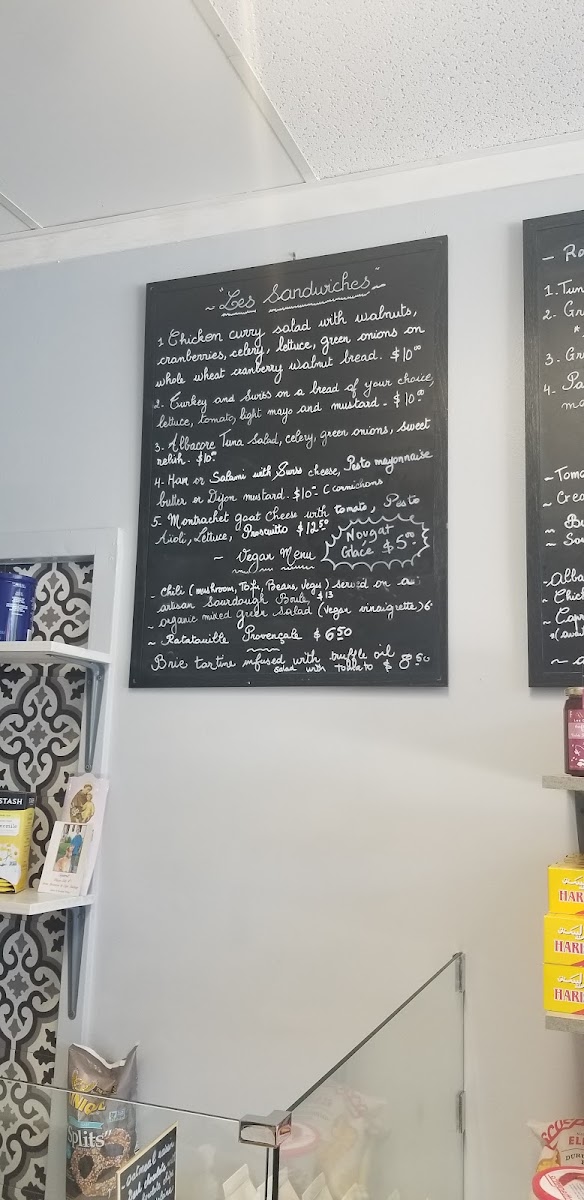 ~ "Les Sandwiches" ~
1 Chicken curry salad with walnuts,
cranberries, celery, lettuce, green onions on
whole wheat cranberry walnut bread. $10.00
2- Turkey and Swiss on a bread of your choice,
lettuce, tomato, light mayo and mustard - $10.00
3- Albacore Tuna Salad, celery, green onions, sweet
relish. $10.00
4- Ham or Salami with Swiss cheese, Pesto mayonnaise
butter or Dijon mustard. $10- (cornichons
5- Montrachet goat cheese with tomato, Pesto
Aioli, Lettuce, Proscuitto $12.50
Nougat
Glacé $5.00
~ Vegan Menu
- Chili (mushroom, Tofu, Beans, Vegu) served on an
artisan Sourdough Boule $13
~ organic mixed green Salad (Vegan vinaigrette) 6-
~ Ratatouille Provençale $6.50
Brie tartine infused with truffle oil
salad with tomato $8.50
1. Tun
2- Gr
3- Gr
4- Pa
- Tom
~ Crea
~ Sou
- Alba
~ Chick
~ Capr
STASH
HAR
HARI
HARI
Splits
oatmeal raisin